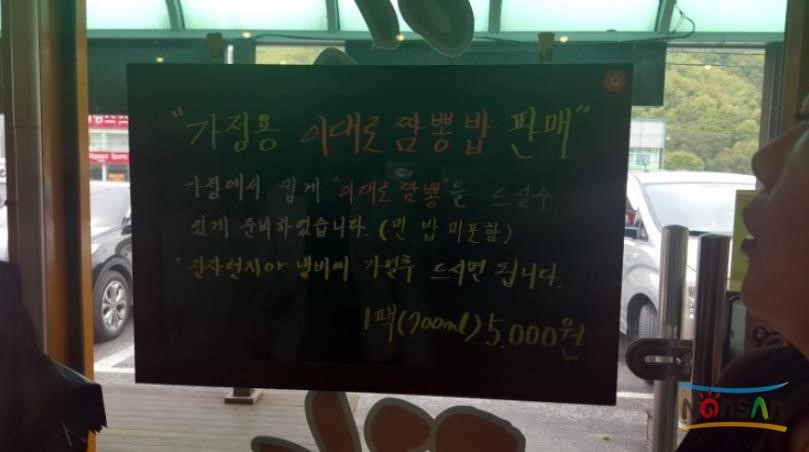 "가정용 이대로 짬뽕밥 판매"
가정에서 쉽게 "이대로짬뽕"을 드실수
있게 준비하였습니다. (면, 밥 미포함)
* 전자렌지나 냄비에 가열후 드시면 됩니다.
1팩(700ml) 5,000원
Sports
NONSAN